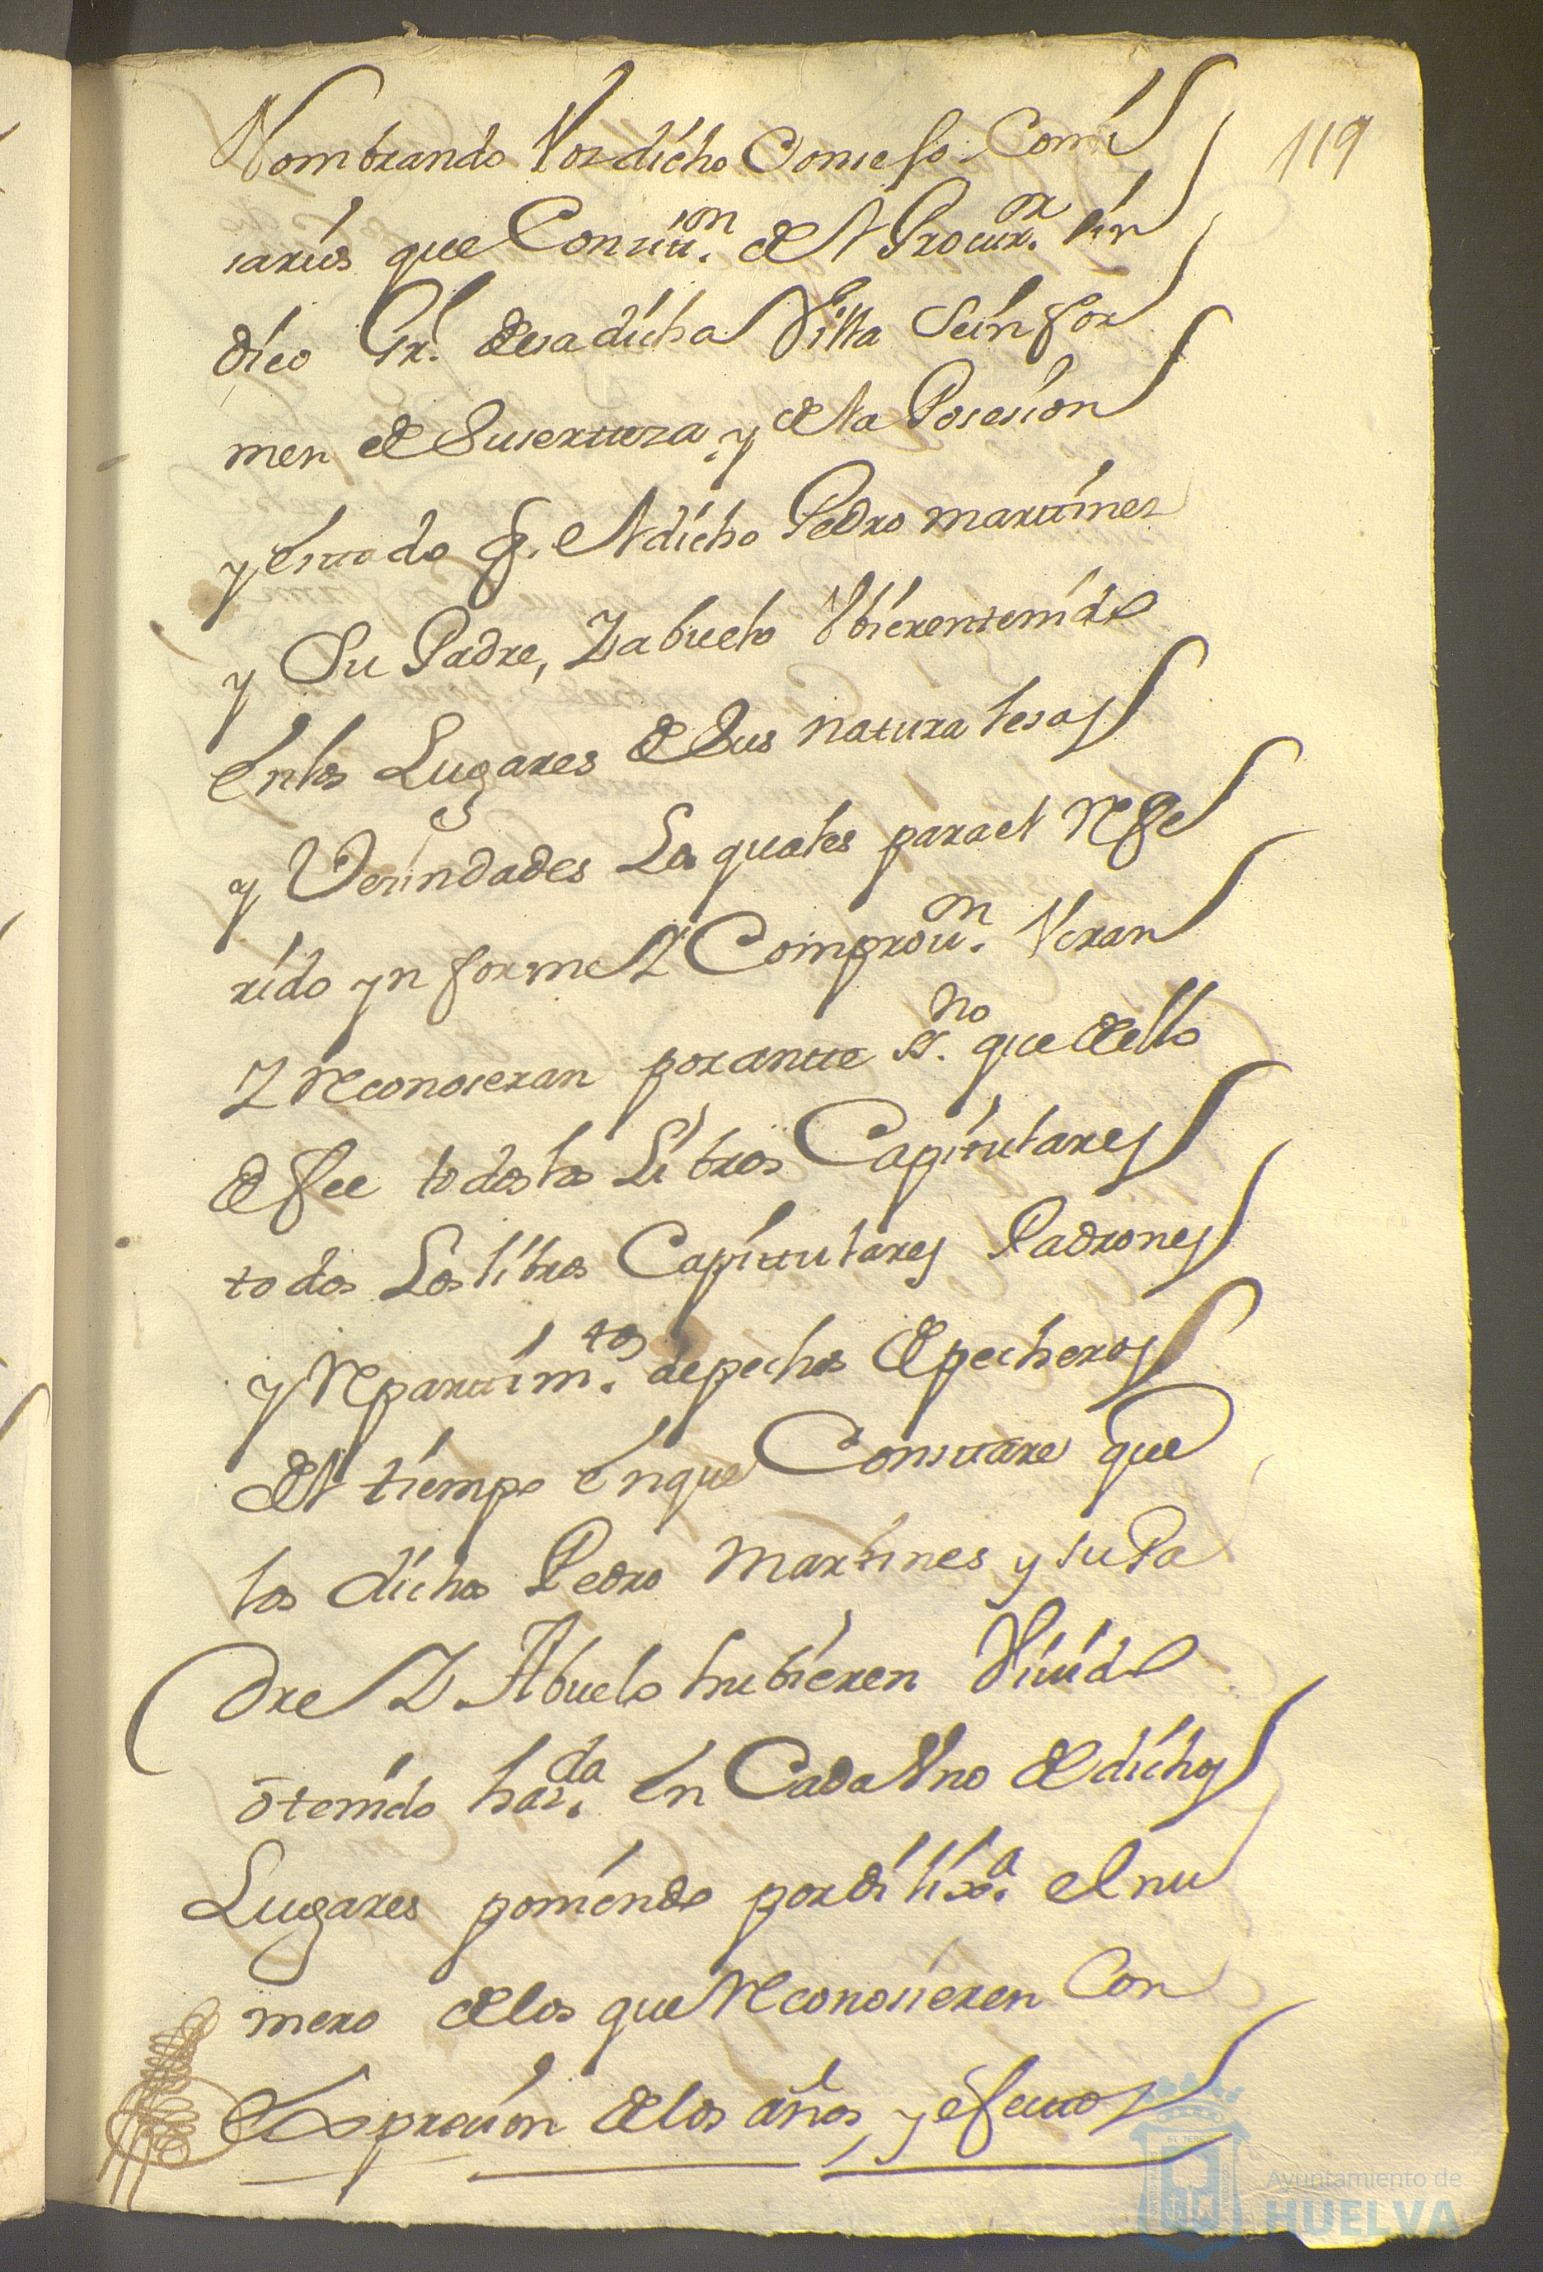 119
Nombrando Por dicho Conseso Comi
sarios que Con sitt.ion del Procur.or sin
dico Gr.l de esa dicha Villa Se infor
men de Su sertteza, y de la Posesion
y esttado q. el dicho Pedro marttines
y Su Padre, Z abuelo Ubieren tenido
en los Lugares de Sus naturalesas
y Vesindades Los quales para el Refe
rido ynforme Z Comprou.on Veran
Z Reconoseran por antte ss.no que de ello
de fee todos los Libros Capitulares
todos Los libros Capittulares Padrones
y Reparttim.tos de pechos de pecheros
del tiempo en que Consttare que
los dichos Pedro Martines y su Pa
dre Z Abuelo hubieren Viuido
o tenido haz.da en Cada Uno de dichos
Lugares poniendo por dilix.a el nu
mero de los que Reconosieren Con
Expresion de los años, y efecttos
Ayuntamiento de
HUELVA